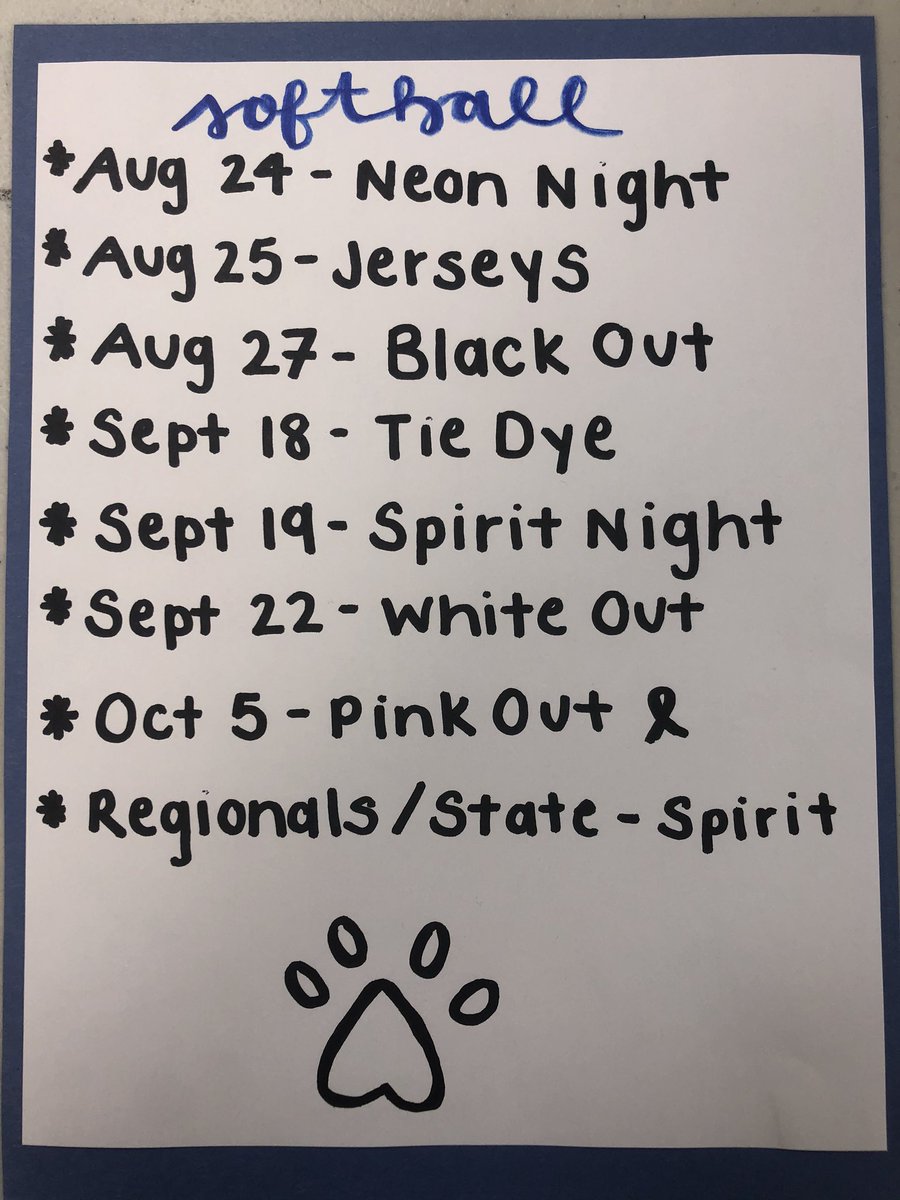 softball
* Aug 24 - Neon Night
* Aug 25 - Jerseys
* Aug 27 - Black Out
* Sept 18 - Tie Dye
* Sept 19 - Spirit Night
* Sept 22 - White Out
* Oct 5 - Pink Out
* Regionals/State - Spirit